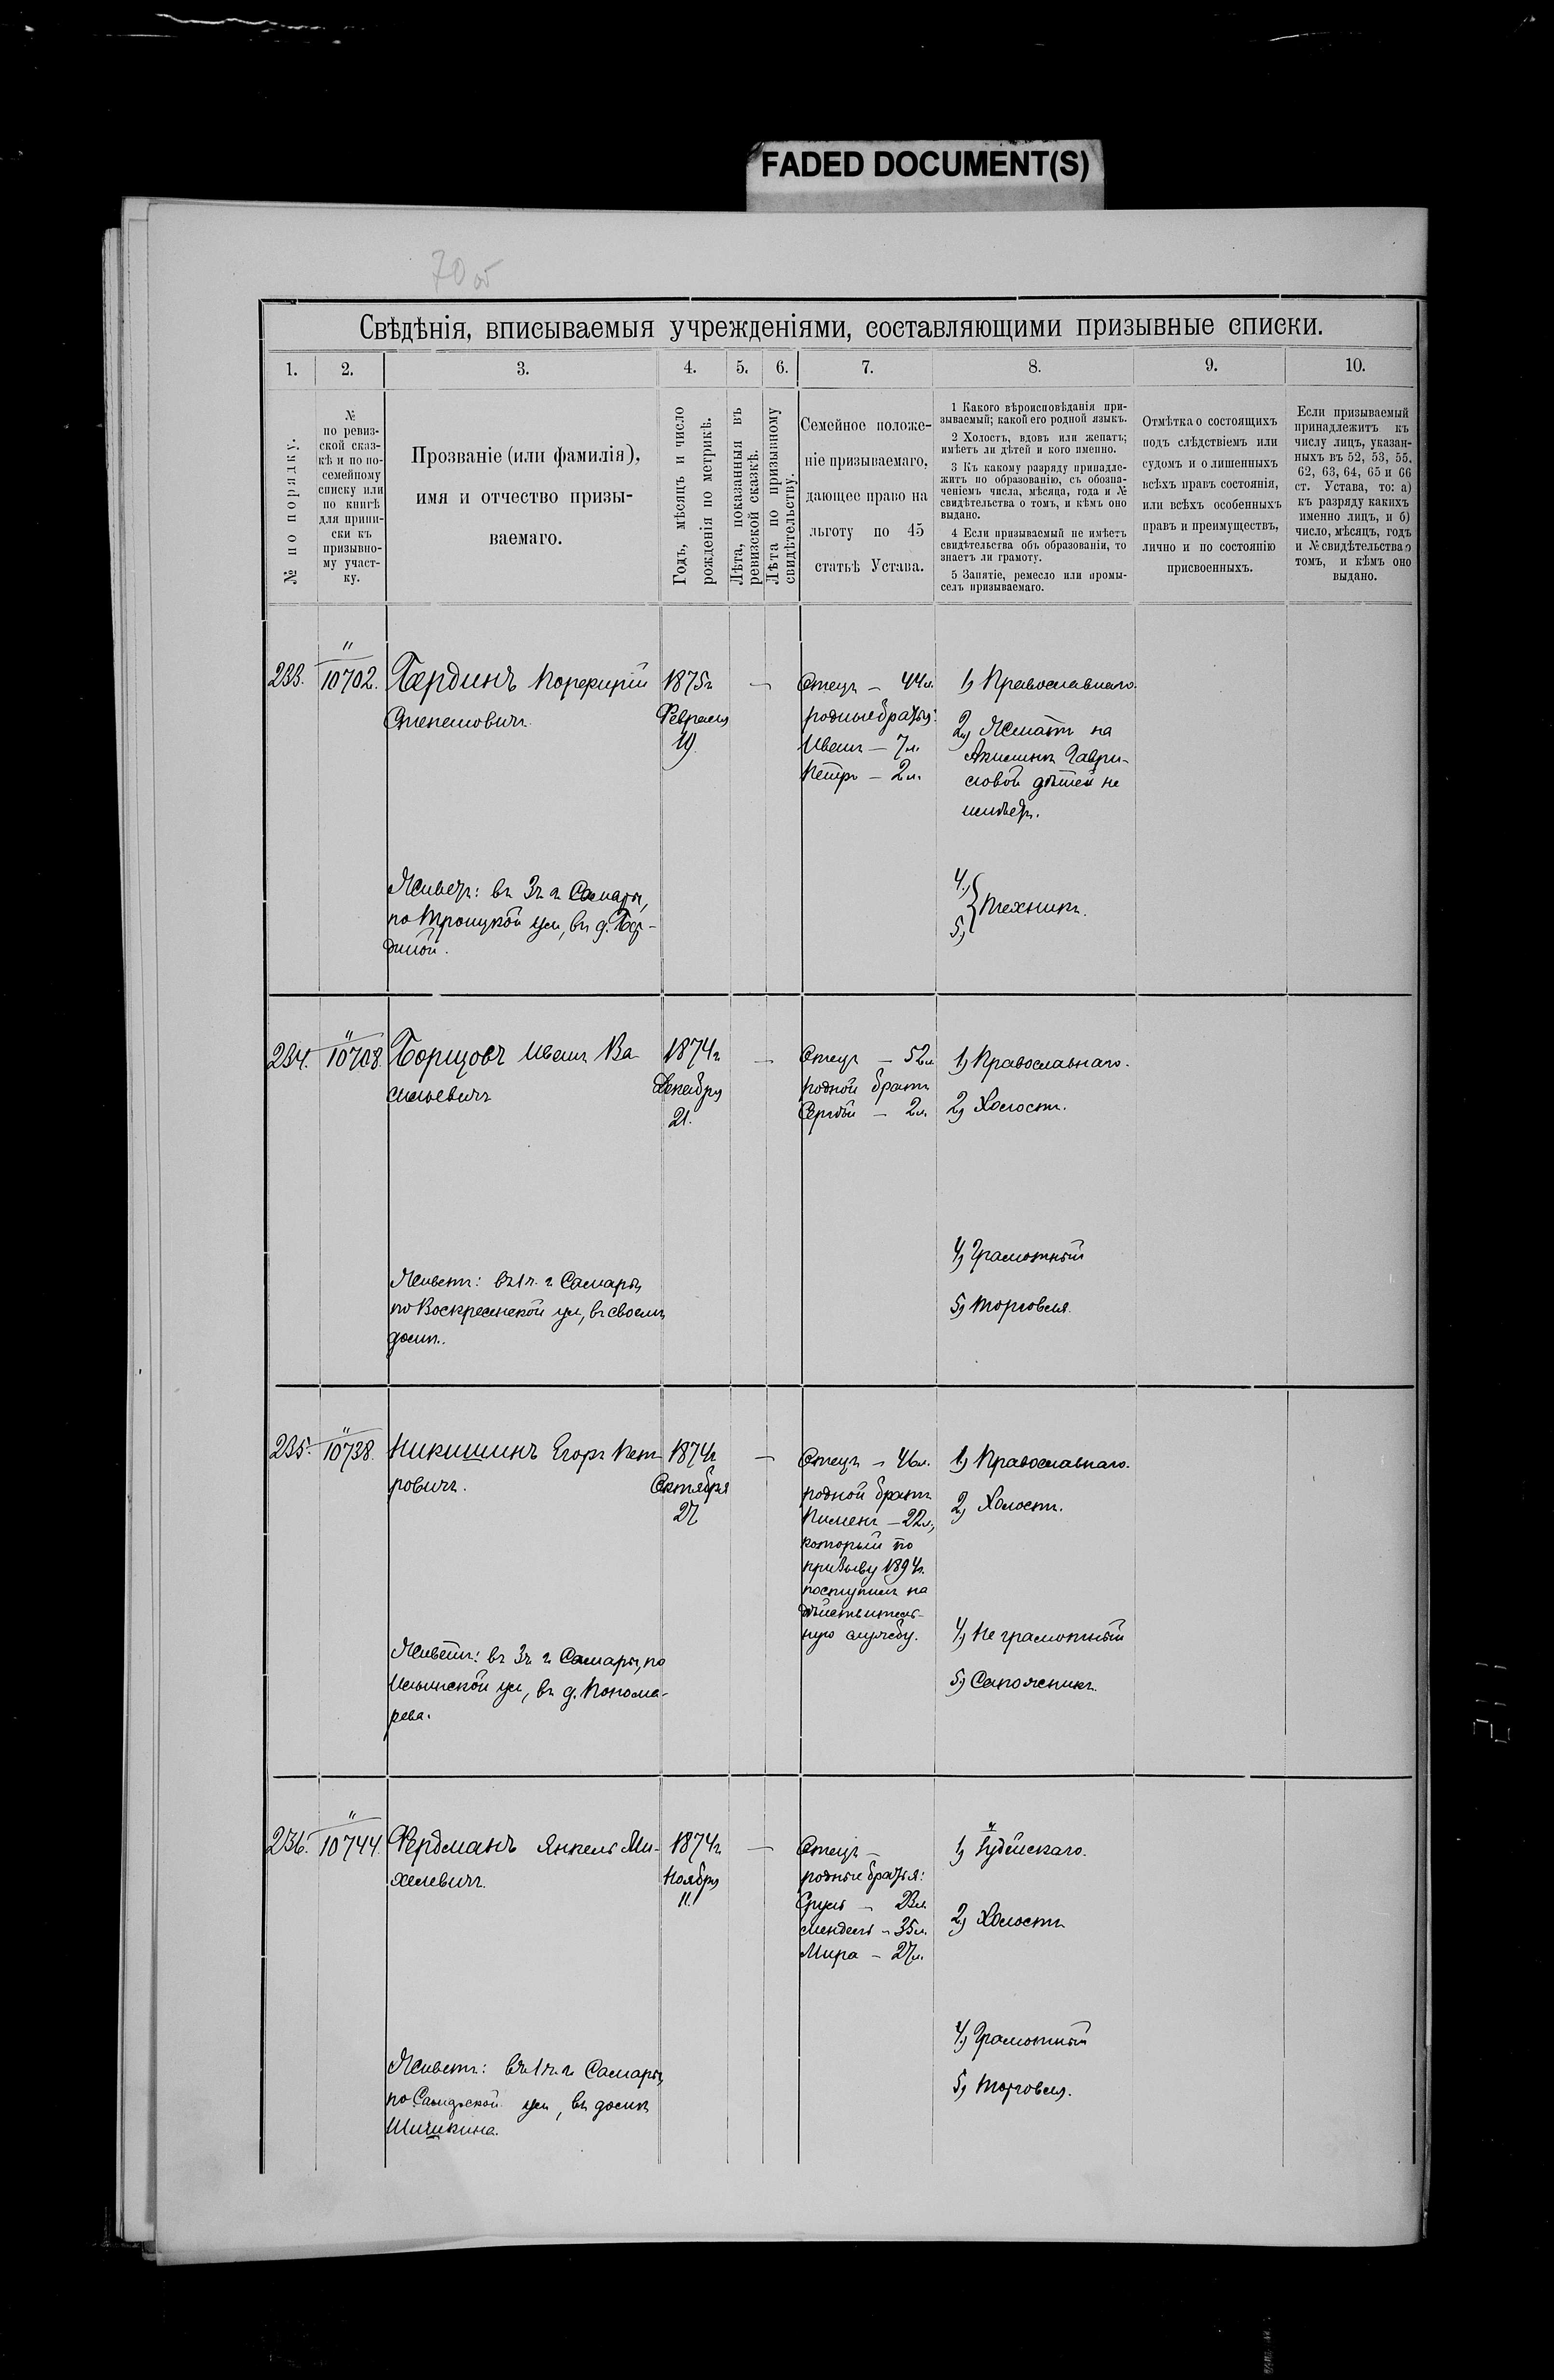 FADED DOCUMENT(S)
70 об
Свѣдѣнія, вписываемыя учрежденіями, составляющими призывные списки.
1. 2. 3. 4. 5. 6. 7. 8. 9. 10.
№ по порядку.
№
по ревиз-
ской сказ-
кѣ и по по-
семейному
списку или
по книгѣ
для припи-
ски къ
призывно-
му участ-
ку.
Прозваніе (или фамилія),
имя и отчество призы-
ваемаго.
Годъ, мѣсяцъ и число
рожденія по метрикѣ.
Лѣта, показанныя въ
ревизской сказкѣ.
Лѣта по призывному
свидѣтельству.
Семейное положе-
ніе призываемаго,
дающее право на
льготу по 45
статьѣ Устава.
1 Какого вѣроисповѣданія при-
зываемый; какой его родной языкъ.
2 Холостъ, вдовъ или женатъ;
имѣетъ ли дѣтей и кого именно.
3 Къ какому разряду принадле-
житъ по образованію, съ обозна-
ченіемъ числа, мѣсяца, года и №
свидѣтельства о томъ, и кѣмъ оно
выдано.
4 Если призываемый не имѣетъ
свидѣтельства объ образованіи, то
знаетъ ли грамоту.
5 Занятіе, ремесло или промы-
селъ призываемаго.
Отмѣтка о состоящихъ
подъ слѣдствіемъ или
судомъ и о лишенныхъ
всѣхъ правъ состоянія,
или всѣхъ особенныхъ
правъ и преимуществъ,
лично и по состоянію
присвоенныхъ.
Если призываемый
принадлежитъ къ
числу лицъ, указан-
ныхъ въ 52, 53, 55,
62, 63, 64, 65 и 66
ст. Устава, то: а)
къ разряду какихъ
именно лицъ, и б)
число, мѣсяцъ, годъ
и № свидѣтельства о
томъ, и кѣмъ оно
выдано.
233.
"
10702.
Бердинъ Порфирій
Степановичъ.
Живетъ: въ 3 ч. г. Самары,
по Троицкой ул, въ д. Бер-
диной.
1875 г
Февраля
19.
—
Отецъ – 44 л.
родные братья:
Иванъ – 7 л.
Петръ – 2 л.
1) Православнаго.
2) Женатъ на
Акилинѣ Гаври-
ловой дѣтей не
имѣетъ.
4)
5)
техникъ.
234.
"
10708.
Борщовъ Иванъ Ва-
сильевичъ
Живетъ: въ 1 ч. г. Самары,
по Воскресенской ул, въ своемъ
домѣ.
1874 г
Декабря
21.
—
Отецъ – 52 л
родной братъ
Сергѣй – 2 л.
1) Православнаго.
2) Холостъ.
4) Грамотный
5) Торговля.
235.
"
10738.
Никишинъ Егоръ Пет-
ровичъ.
Живетъ: въ 3 ч. г. Самары, по
Ильинской ул, въ д. Понома-
рева.
1874 г
Октября
27
—
Отецъ – 46 л.
родной братъ
Пименъ – 22 л,
который по
призыву 1894 г.
поступилъ на
дѣйствитель-
ную службу.
1) Православнаго.
2) Холостъ.
4) Неграмотный
5) Сапожникъ.
236.
"
10744.
Фердманъ Янкель Ми-
хелевичъ.
Живетъ: въ 1 ч. г. Самары,
по Самарской ул, въ домѣ
Шишкина.
1874 г.
Ноября
11.
—
Отецъ –
родные братья:
Сруль – 23 л.
Мендель – 35 л.
Мира – 27 л.
1) Іудейскаго.
2) Холостъ
4) Грамотный
5) Торговля.